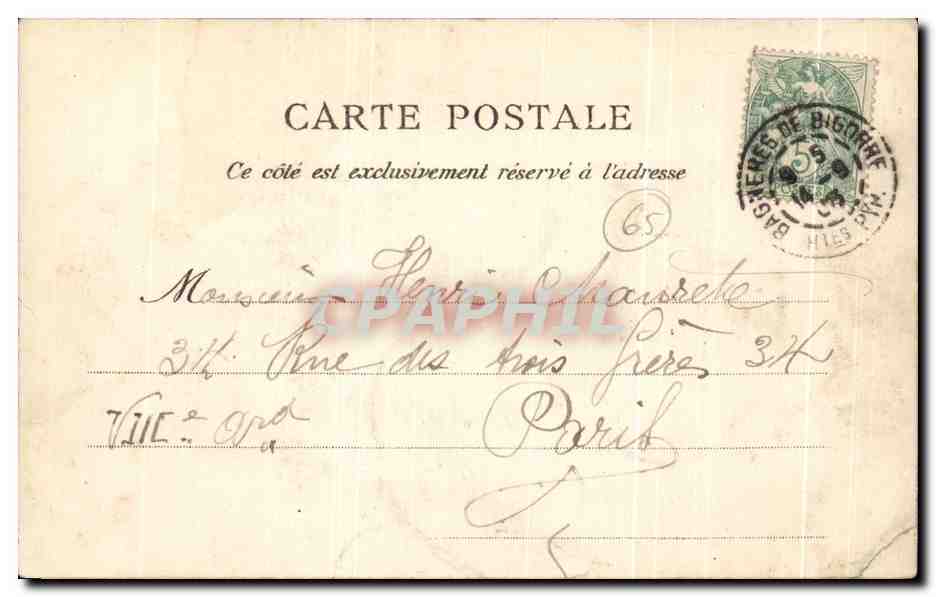 CARTE POSTALE
Ce côté est exclusivement réservé à l'adresse
BAGNERES DE BIGORRE
Htes PYR.
5
65
Monsieur Henri
34 Rue des trois frères 34
VIIIe Ard Paris
CPAPHIL